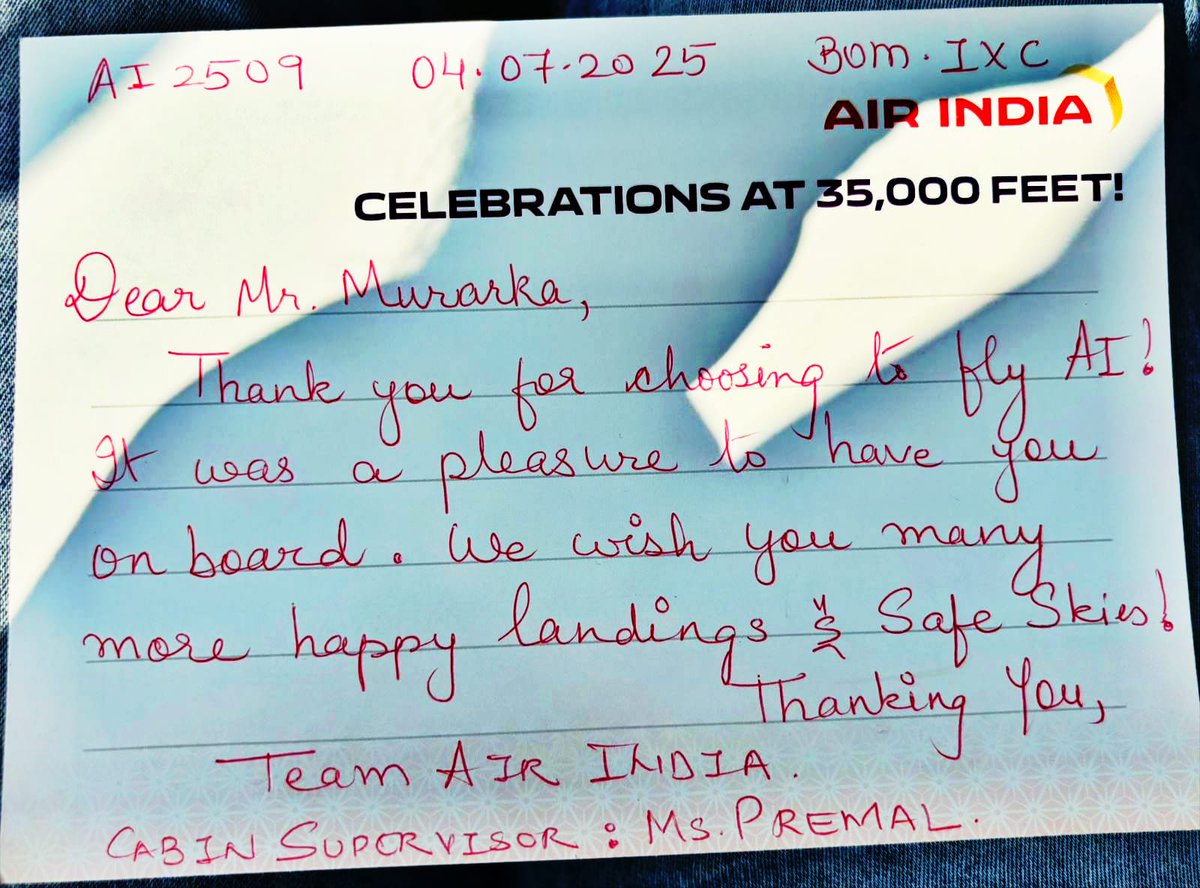 AI 2509 04.07.2025 BOM. IXC
AIR INDIA
CELEBRATIONS AT 35,000 FEET!
Dear Mr. Murarka,
Thank you for choosing to fly AI!
It was a pleasure to have you
on board. We wish you many
more happy landings & Safe Skies!
Thanking You,
Team AIR INDIA.
CABIN SUPERVISOR : MS. PREMAL.